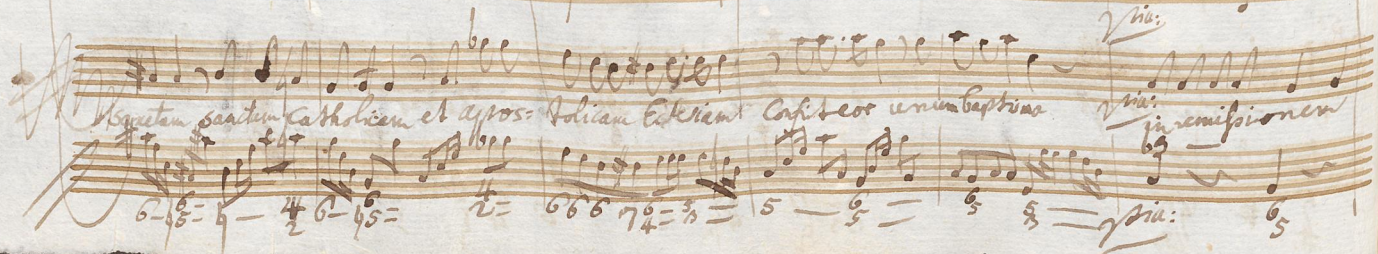 pia:
sanctam sanctam Catholicam et apos= tolicam Ecclesiam Confiteor unum baptisma pia: in remissionem
6 3
6 - 4 6 5 = 4 - 4 2 6 - 4 5 6 = 4 2 = 6 6 6 7 6 4 = 5 3 = 5 - 6 5 = 6 5 5 3 = pia: 6 5